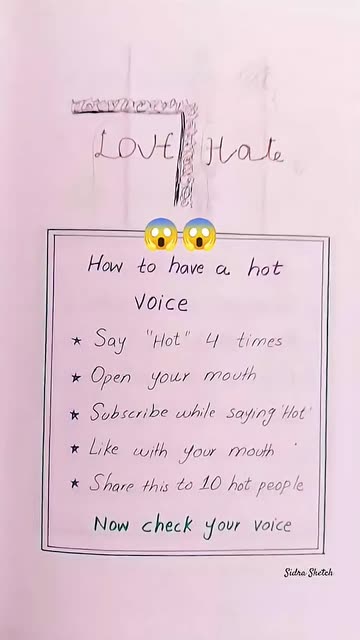 LOVE Hate
How to have a hot
voice
★ Say "Hot" 4 times
★ Open your mouth
★ Subscribe while saying 'Hot'
★ Like with your mouth
★ Share this to 10 hot people
Now check your voice
Sidra Sketch